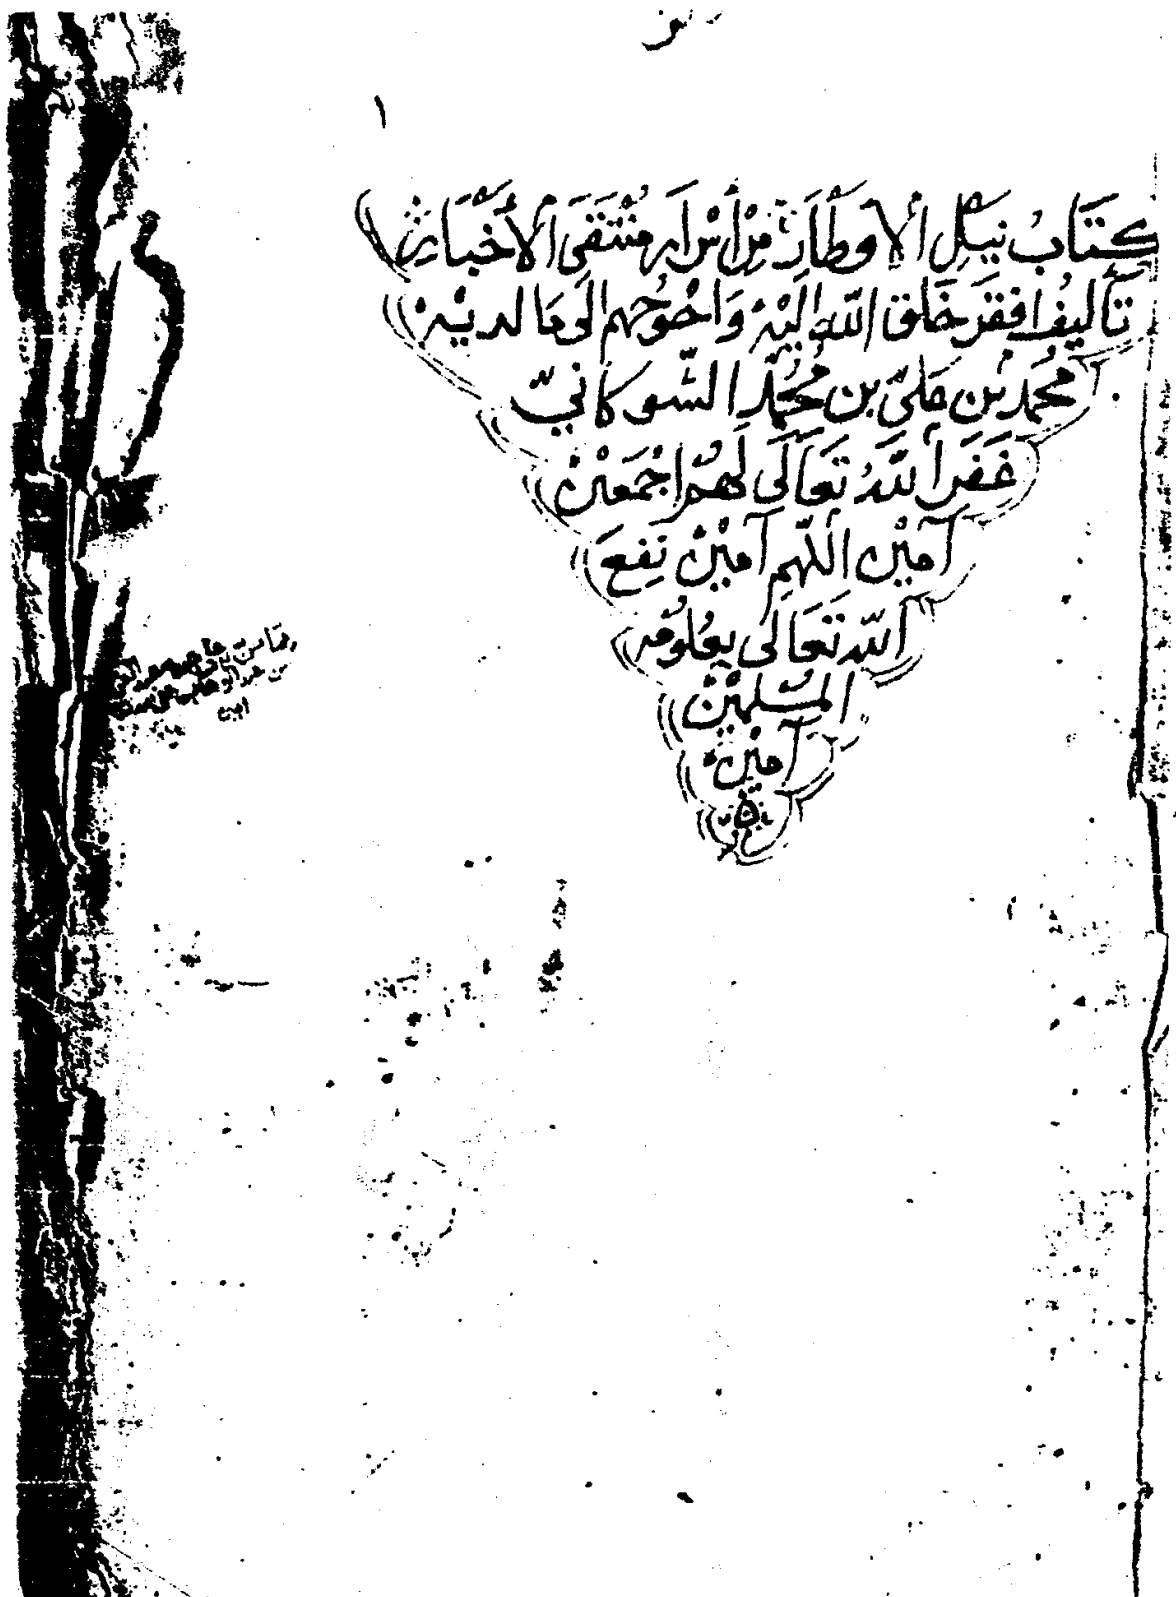 ١
كتَابُ نيلِ ألاوطَارِ مِنْ أسْرَارِ مُنْتَقَى ألأَخْبَارِ
تَأليفُ افقرَ خَلق اللهِ إليْهِ وَاحْوجُهم الَى مَا لديْهِ
مُحَمدُ بْن عَليّ بن مُحُمَّد الشّوكانيّ
غَفَر أللهُ تعَالَى لَهُمْ اجْمَعيْنَ
آميْن اللّهم آميْنَ نَفعَ
اللّه تَعَالَى بِعُلُومِه
المسْلميْنَ
آميْن